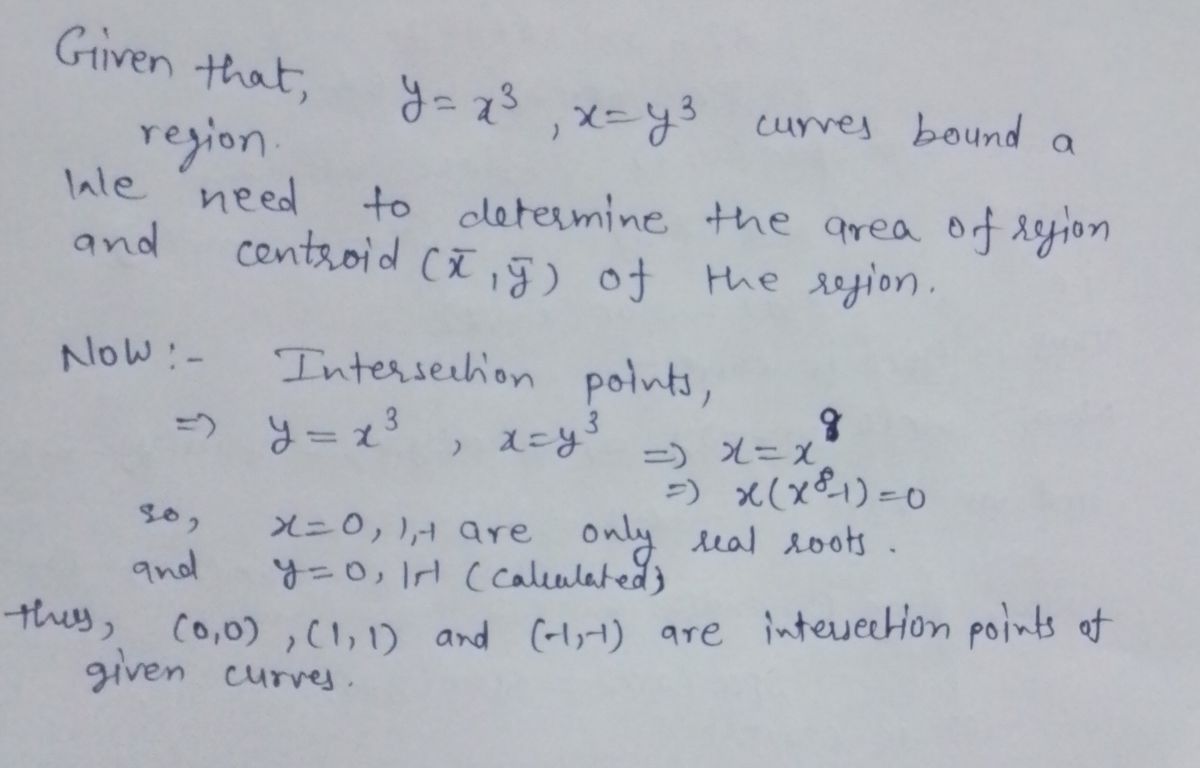 Given that, y = x³ , x = y³ curves bound a
region.
We need to determine the area of region
and centroid (x̄ , ȳ) of the region.
Now :- Intersection points,
⇒ y = x³ , x = y³ ⇒ x = x⁹
⇒ x(x⁸-1) = 0
so, x = 0, 1, -1 are only real roots .
and y = 0, 1, -1 (calculated)
thus, (0,0) , (1, 1) and (-1,-1) are intersection points of
given curves .